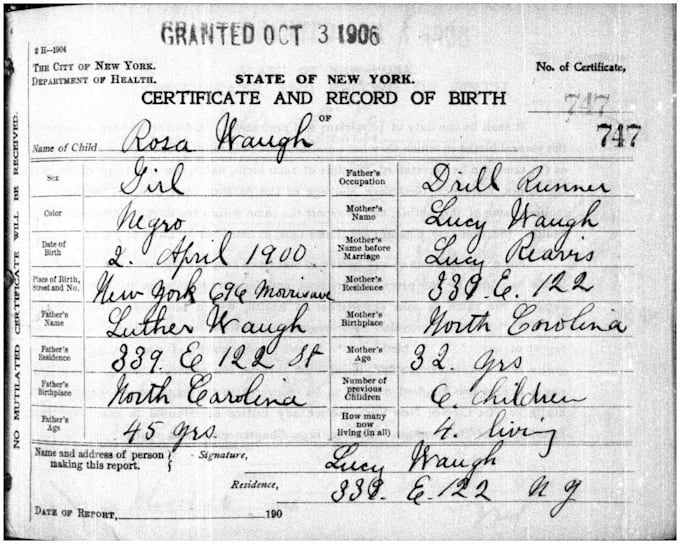 GRANTED OCT 3 1906
2 H—1904
THE CITY OF NEW YORK.
DEPARTMENT OF HEALTH.
STATE OF NEW YORK.
No. of Certificate,
CERTIFICATE AND RECORD OF BIRTH
OF
747
747
Name of Child Rosa Waugh
Sex Girl
Father's Occupation Drill Runner
Color Negro
Mother's Name Lucy Waugh
Date of Birth 2. April 1900
Mother's Name before Marriage Lucy Reavis
Place of Birth, Street and No. New York 696 Morris ave
Mother's Residence 339. E. 122
Father's Name Luther Waugh
Mother's Birthplace North Carolina
Father's Residence 339. E 122 St
Mother's Age 32. yrs
Father's Birthplace North Carolina
Number of previous Children 6. children
Father's Age 45 yrs.
How many now living (in all) 4. living
Name and address of person making this report.
Signature, Lucy Waugh
Residence, 339. E. 122 N Y
DATE OF REPORT, 190
NO MUTILATED CERTIFICATE WILL BE RECEIVED.